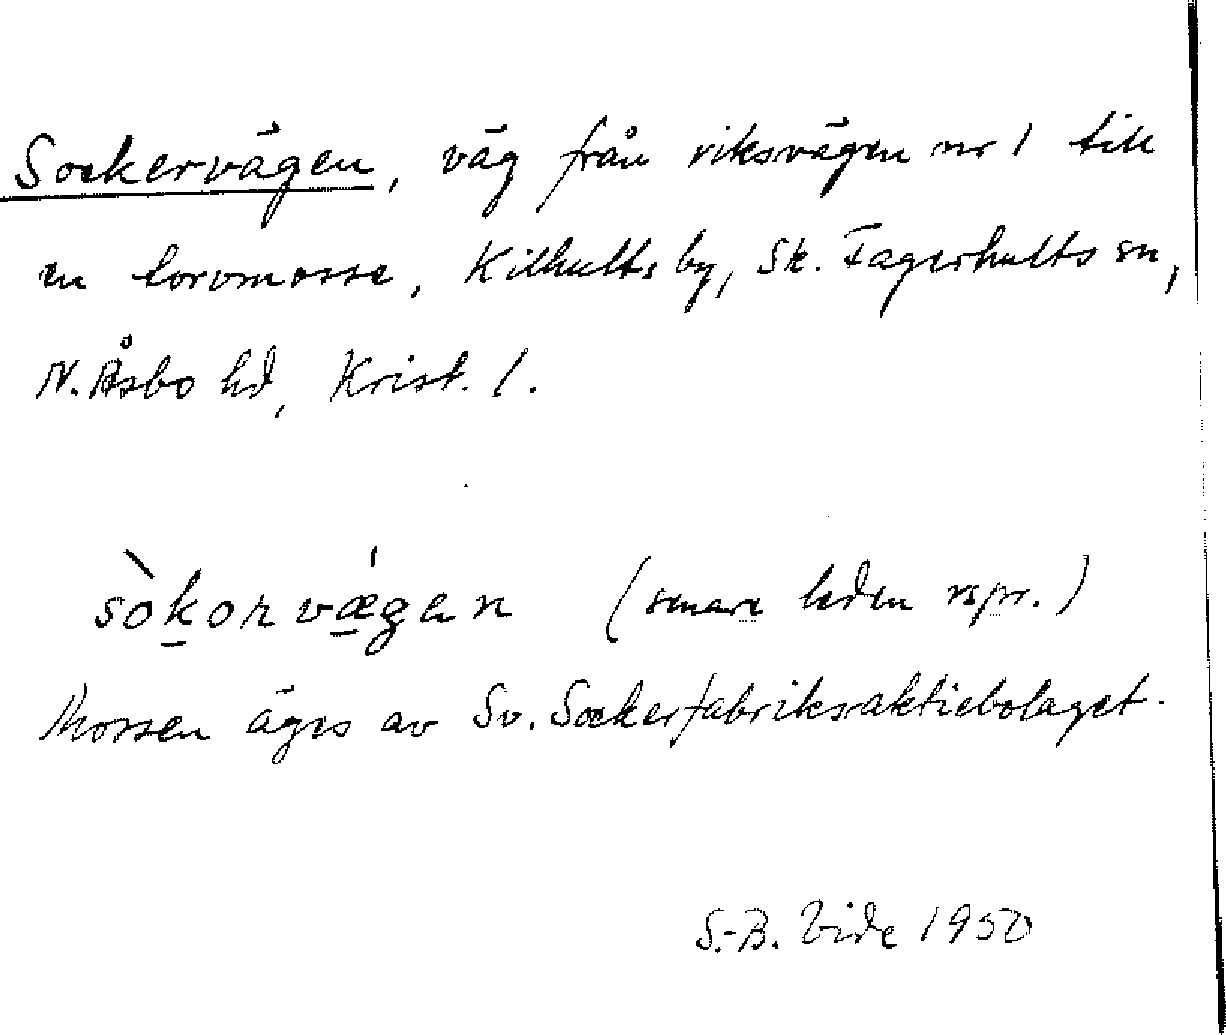 Sockervägen, väg från riksvägen nr 1 till
en torvmosse, Kilhults by, Sk. Fagerhults sn,
N. Åsbo hd, Krist. l.
sòkorvǽgen (senare leden rspr.)
Mossen äges av Sv. Sockerfabriksaktiebolaget.
S.-B. Vide 1950